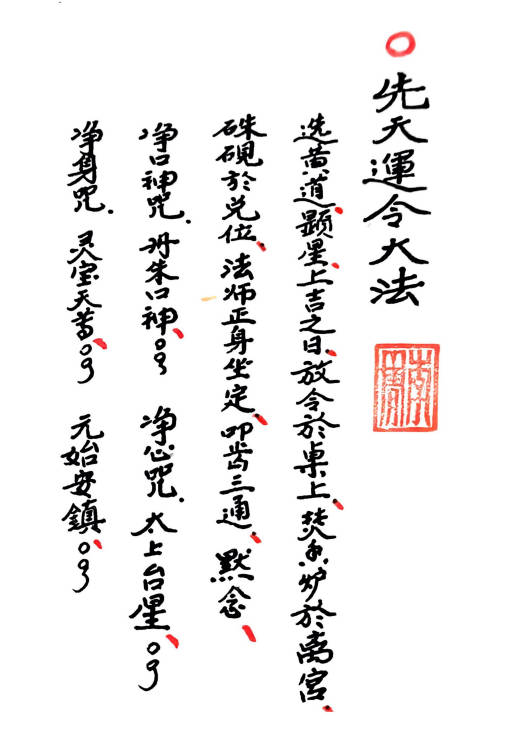 先天運令大法
选黄道、顕星、上吉之日、放令於桌上、焚香炉於离宫、
硃硯於兑位、法师正身坐定、叩齿三通、默念、
净口神咒. 丹朱口神、 净心咒. 太上台星、
净身咒. 灵宝天尊、 元始安鎮、